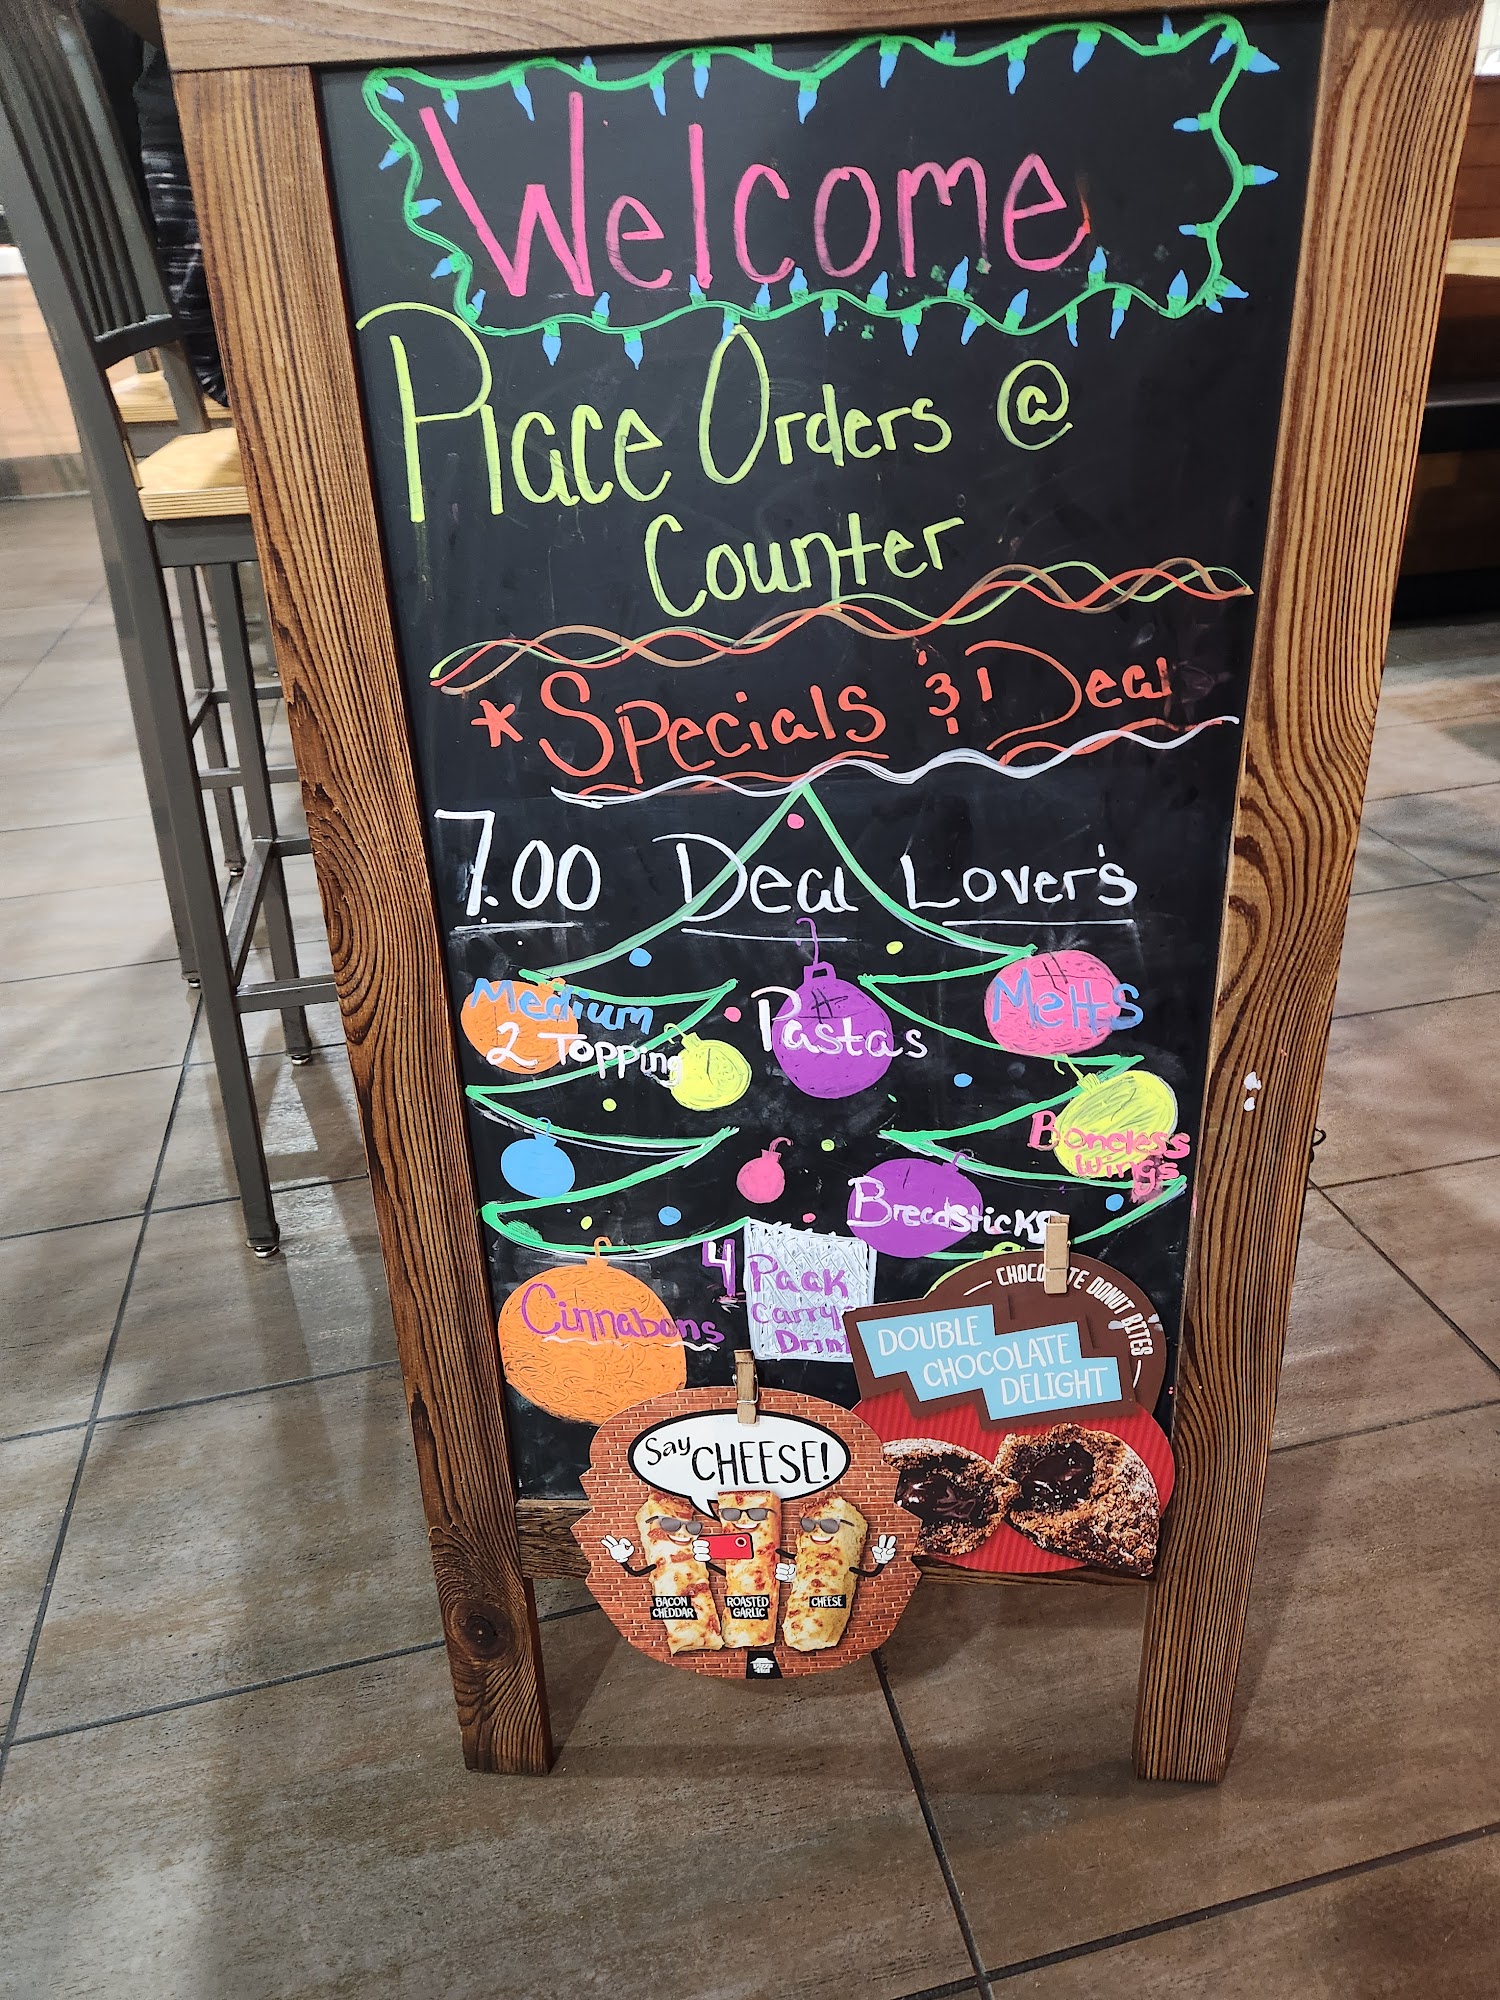 Welcome
Place Orders @
Counter
* Specials & Deal
7.00 Deal Lover's
Medium
2 Topping
Pastas
Melts
Boneless
Wings
Breadsticks
Cinnabons
4 Pack
Carry
Drin
CHOCOLATE DONUT BITES
DOUBLE
CHOCOLATE
DELIGHT
Say
CHEESE!
BACON
CHEDDAR
ROASTED
GARLIC
CHEESE